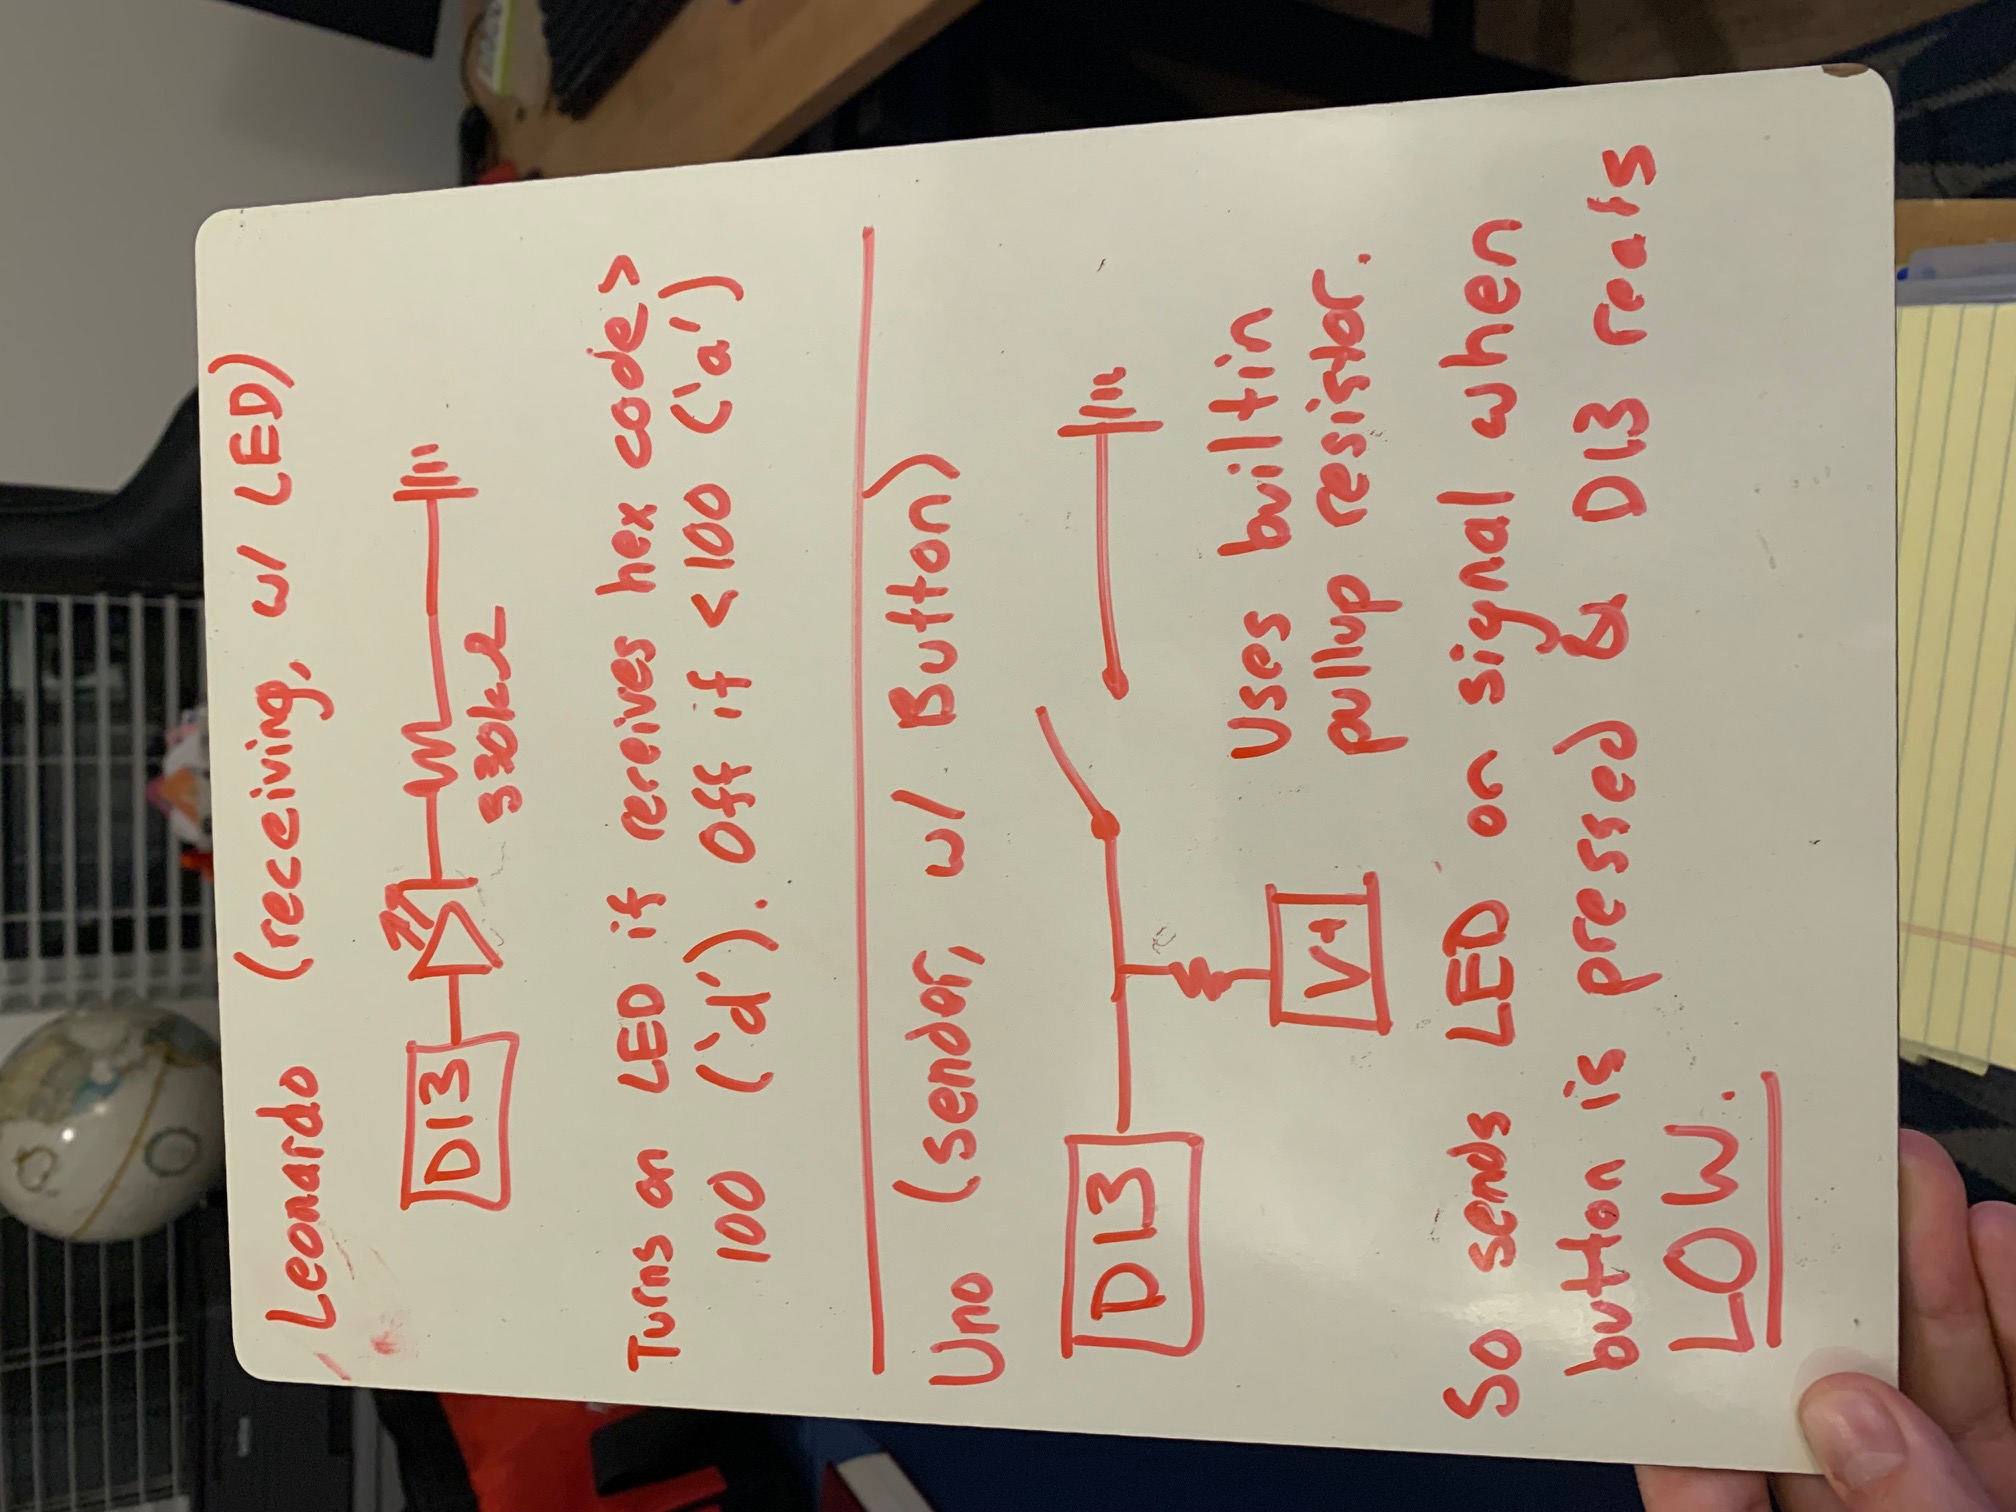 Leonardo (receiving, w/ LED)
D13
330kΩ
Turns on LED if receives hex code >
100 ('d'). Off if <100 ('a')
Uno (sender, w/ Button)
D13
V+
Uses builtin
pullup resistor.
So sends LED on signal when
button is pressed & D13 reads
LOW.